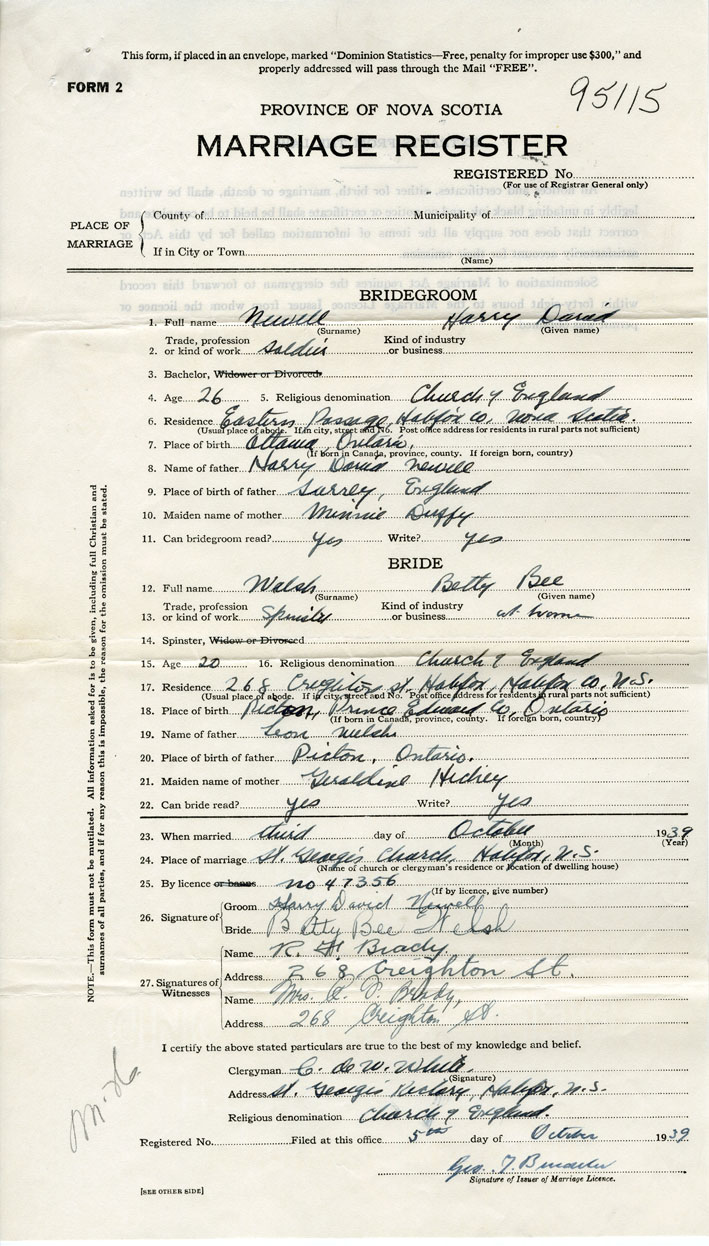 This form, if placed in an envelope, marked "Dominion Statistics—Free, penalty for improper use $300," and
properly addressed will pass through the Mail "FREE".
FORM 2
95115
PROVINCE OF NOVA SCOTIA
MARRIAGE REGISTER
REGISTERED No.
(For use of Registrar General only)
PLACE OF MARRIAGE
County of
Municipality of
If in City or Town
(Name)
BRIDEGROOM
1. Full name Newell Harry David
(Surname) (Given name)
2. Trade, profession or kind of work soldier Kind of industry or business
3. Bachelor, Widower or Divorced
4. Age 26 5. Religious denomination Church of England
6. Residence Eastern Passage, Halifax Co, Nova Scotia.
(Usual place of abode. If in city, street and No. Post office address for residents in rural parts not sufficient)
7. Place of birth Ottawa, Ontario,
(If born in Canada, province, county. If foreign born, country)
8. Name of father Harry David Newell
9. Place of birth of father Surrey, England
10. Maiden name of mother Minnie Duffy
11. Can bridegroom read? yes Write? yes
BRIDE
12. Full name Walsh Betty Bee
(Surname) (Given name)
13. Trade, profession or kind of work Spinster Kind of industry or business at home
14. Spinster, Widow or Divorced
15. Age 20 16. Religious denomination Church of England
17. Residence 268 Creighton st, Halifax, Halifax Co, N.S.
(Usual place of abode. If in city, street and No. Post office address for residents in rural parts not sufficient)
18. Place of birth Picton, Prince Edward Co, Ontario
(If born in Canada, province, county. If foreign born, country)
19. Name of father Leon Welsh
20. Place of birth of father Picton, Ontario.
21. Maiden name of mother Geraldine Hickey
22. Can bride read? yes Write? yes
23. When married third day of October 1939
(Month) (Year)
24. Place of marriage St. George's Church, Halifax, N.S.
(Name of church or clergyman's residence or location of dwelling house)
25. By licence or banns no 47356
(If by licence, give number)
26. Signature of
Groom Harry David Newell
Bride Betty Bee Welsh
27. Signatures of Witnesses
Name R. H. Brady
Address 268 Creighton St.
Name Mrs. Brady,
Address 268 Creighton St.
I certify the above stated particulars are true to the best of my knowledge and belief.
Clergyman C. de W. White
(Signature)
Address St. George's Rectory, Halifax, N.S.
Religious denomination Church of England.
Registered No. Filed at this office 5 day of October 1939
Geo.
Signature of Issuer of Marriage Licence.
[SEE OTHER SIDE]
NOTE.—This form must not be mutilated. All information asked for is to be given, including full Christian and
surnames of all parties, and if for any reason this is impossible, the reason for the omission must be stated.